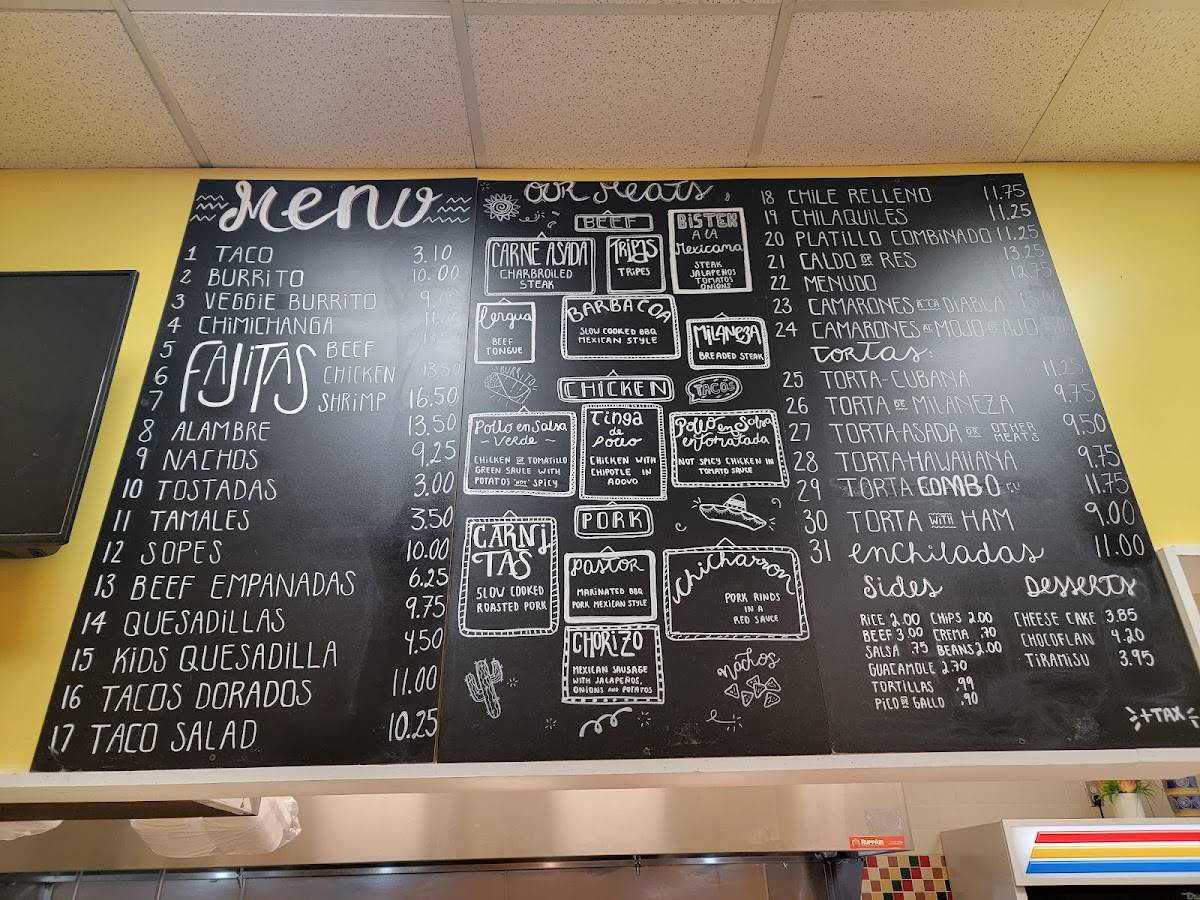 Menu
1 TACO 3.10
2 BURRITO 10.00
3 VEGGIE BURRITO
4 CHIMICHANGA
5 FAJITAS BEEF
6 CHICKEN
7 SHRIMP 16.50
8 ALAMBRE 13.50
9 NACHOS 9.25
10 TOSTADAS 3.00
11 TAMALES 3.50
12 SOPES 10.00
13 BEEF EMPANADAS 6.25
14 QUESADILLAS 9.75
15 KIDS QUESADILLA 4.50
16 TACOS DORADOS 11.00
17 TACO SALAD 10.25
OUR Meats
BEEF
CARNE ASADA
CHARBROILED
STEAK
TRIPAS
TRIPES
BISTEK
A LA
Mexicana
STEAK
JALAPEÑOS
TOMATOS
ONIONS
Lengua
BEEF
TONGUE
BARBACOA
SLOW COOKED BBQ
MEXICAN STYLE
MILANEZA
BREADED STEAK
BURRITO
CHICKEN
TACOS
Pollo en Salsa
~ VERDE ~
CHICKEN IN TOMATILLO
GREEN SAUCE WITH
POTATOS "NOT" SPICY
Tinga
de
Pollo
CHICKEN WITH
CHIPOTLE IN
ADOVO
Pollo en Salsa
enTomatada
NOT SPICY CHICKEN IN
TOMATO SAUCE
PORK
CARNITAS
SLOW COOKED
ROASTED PORK
Pastor
MARINATED BBQ
PORK MEXICAN STYLE
Chicharron
PORK RINDS
IN A
RED SAUCE
CHORIZO
MEXICAN SAUSAGE
WITH JALAPEÑOS,
ONIONS AND POTATOS
nachos
18 CHILE RELLENO 11.75
19 CHILAQUILES 11.25
20 PLATILLO COMBINADO 11.25
21 CALDO DE RES 13.25
22 MENUDO 12.75
23 CAMARONES A LA DIABLA
24 CAMARONES AL MOJO DE AJO
TORTAS:
25 TORTA-CUBANA 11.25
26 TORTA DE MILANEZA 9.75
27 TORTA-ASADA OR OTHER MEATS 9.50
28 TORTA-HAWAIIANA 9.75
29 TORTA COMBO 11.75
30 TORTA WITH HAM 9.00
31 enchiladas 11.00
Sides
RICE 2.00 CHIPS 2.00
BEEF 3.00 CREMA .70
SALSA .75 BEANS 2.00
GUACAMOLE 2.70
TORTILLAS .99
PICO DE GALLO .90
DESSERTS
CHEESE CAKE 3.85
CHOCOFLAN 4.20
TIRAMISU 3.95
+TAX